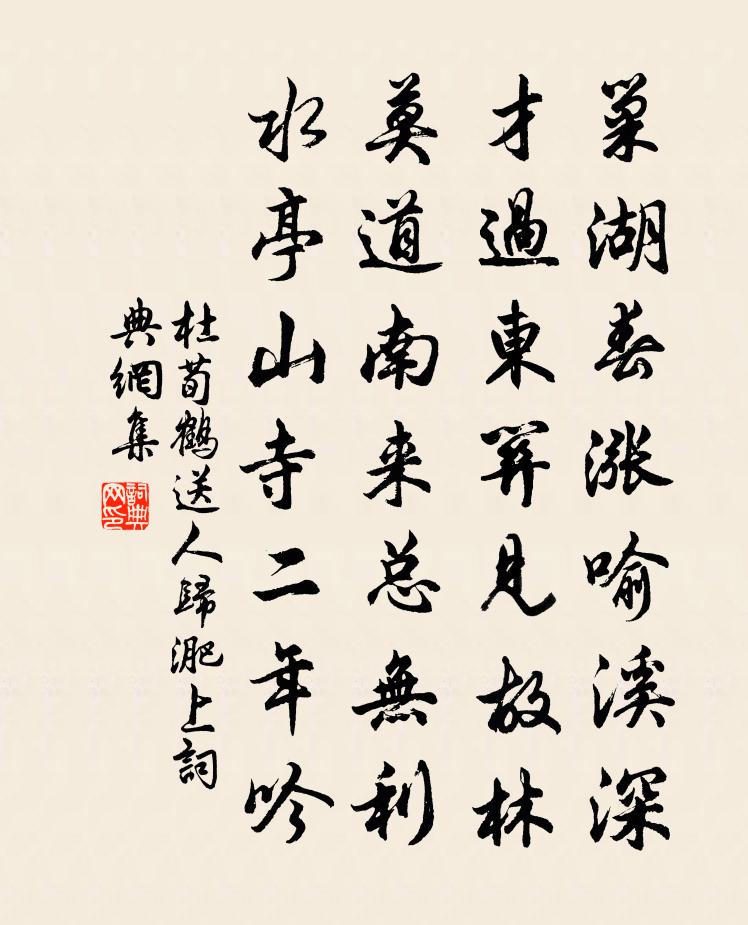 巢湖春漲喻溪深
才過東關見故林
莫道南来总無利
水亭山寺二年吟
杜荀鶴送人歸淝上詞
典網集
詞典
网印